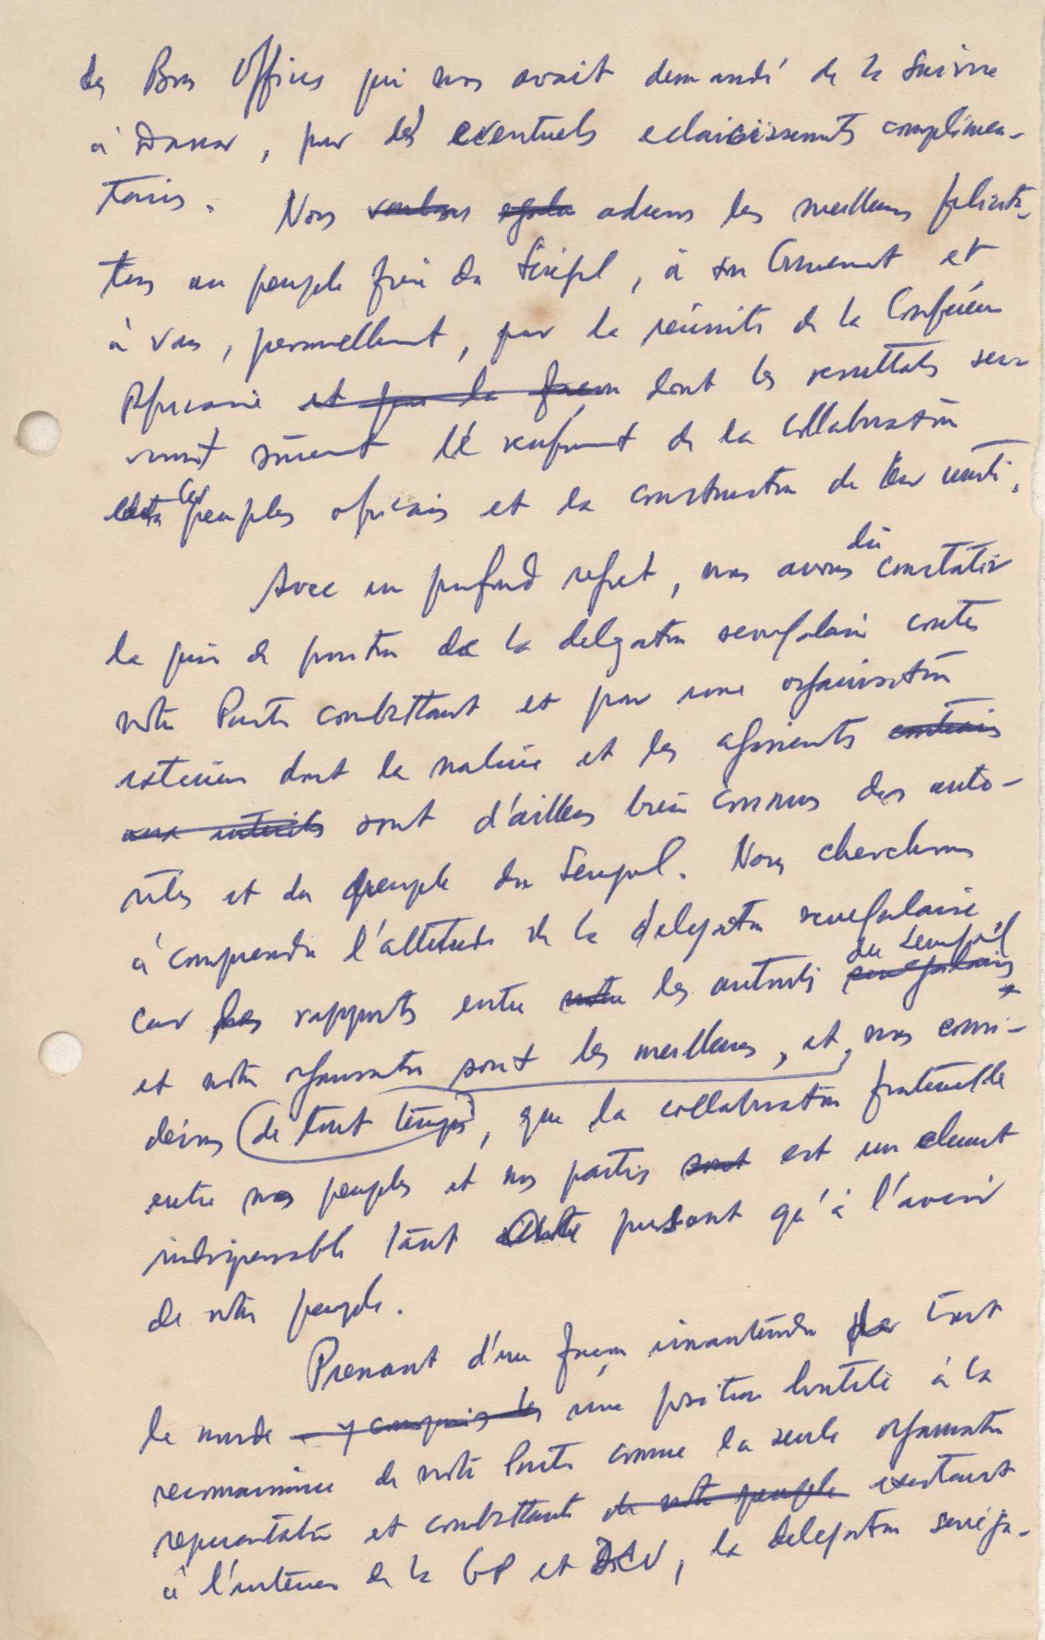 des Bons Offices qui nous avait demandé de la suivre
à Dakar, pour des eventuels eclaircissements complémen-
taires. Nous voulons adressons les meilleurs félicita-
tions au peuple frère du Sénégal, à son Gouvernement et
à vous, personnellement, pour la réussite de la Conférence
Africaine et pour la façon dont les resultats ser-
viront sûrement le renforcement de la collaboration
ces peuples africains et la construction de leur unité.
Avec un profond regret, nous avons dû constater
la prise de position de la délégation senegalaise contre
notre Parti combattant et pour une organisation
exterieure dont la nature et les agissements contraires
aux intérêts sont d'ailleurs bien connus des auto-
rités et du peuple du Senegal. Nous cherchons
à comprendre l'attitude de la délégation senegalaise
car les rapports entre notre les autorités senegalaises du Senegal
et notre organisation sont les meilleures, et, nous consi-
dérons de tout temps, que la collaboration fraternelle
entre nos peuples et nos partis sont est un element
indispensable tant présent qu'à l'avenir
de notre peuple.
Prenant d'une façon inattendue par tout
le monde - y compris les une position hostile à la
reconnaissance de notre Parti comme la seule organisation
représentative et combattante de notre peuple existant
à l'intérieur de la GP et CV, la delegation sénéga-